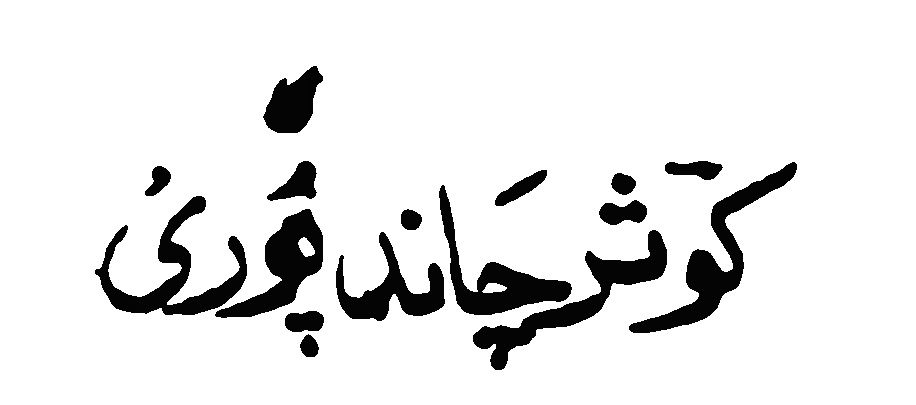 کوثر چاند پوری